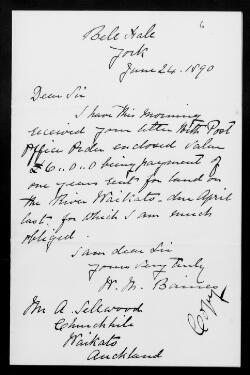 6
Bele Hale
York
June 24. 1890
Dear Sir
I have this morning
received your letter with Post
Office Order enclosed value
£6..0..0 being payment of
one years rent for land on
the River Waikato - due April
last. for which I am much
obliged.
I am dear Sir
yours very truly
W. M. Baines
Mr A. Sellwood
Churchhill
Waikato
Auckland
Copy